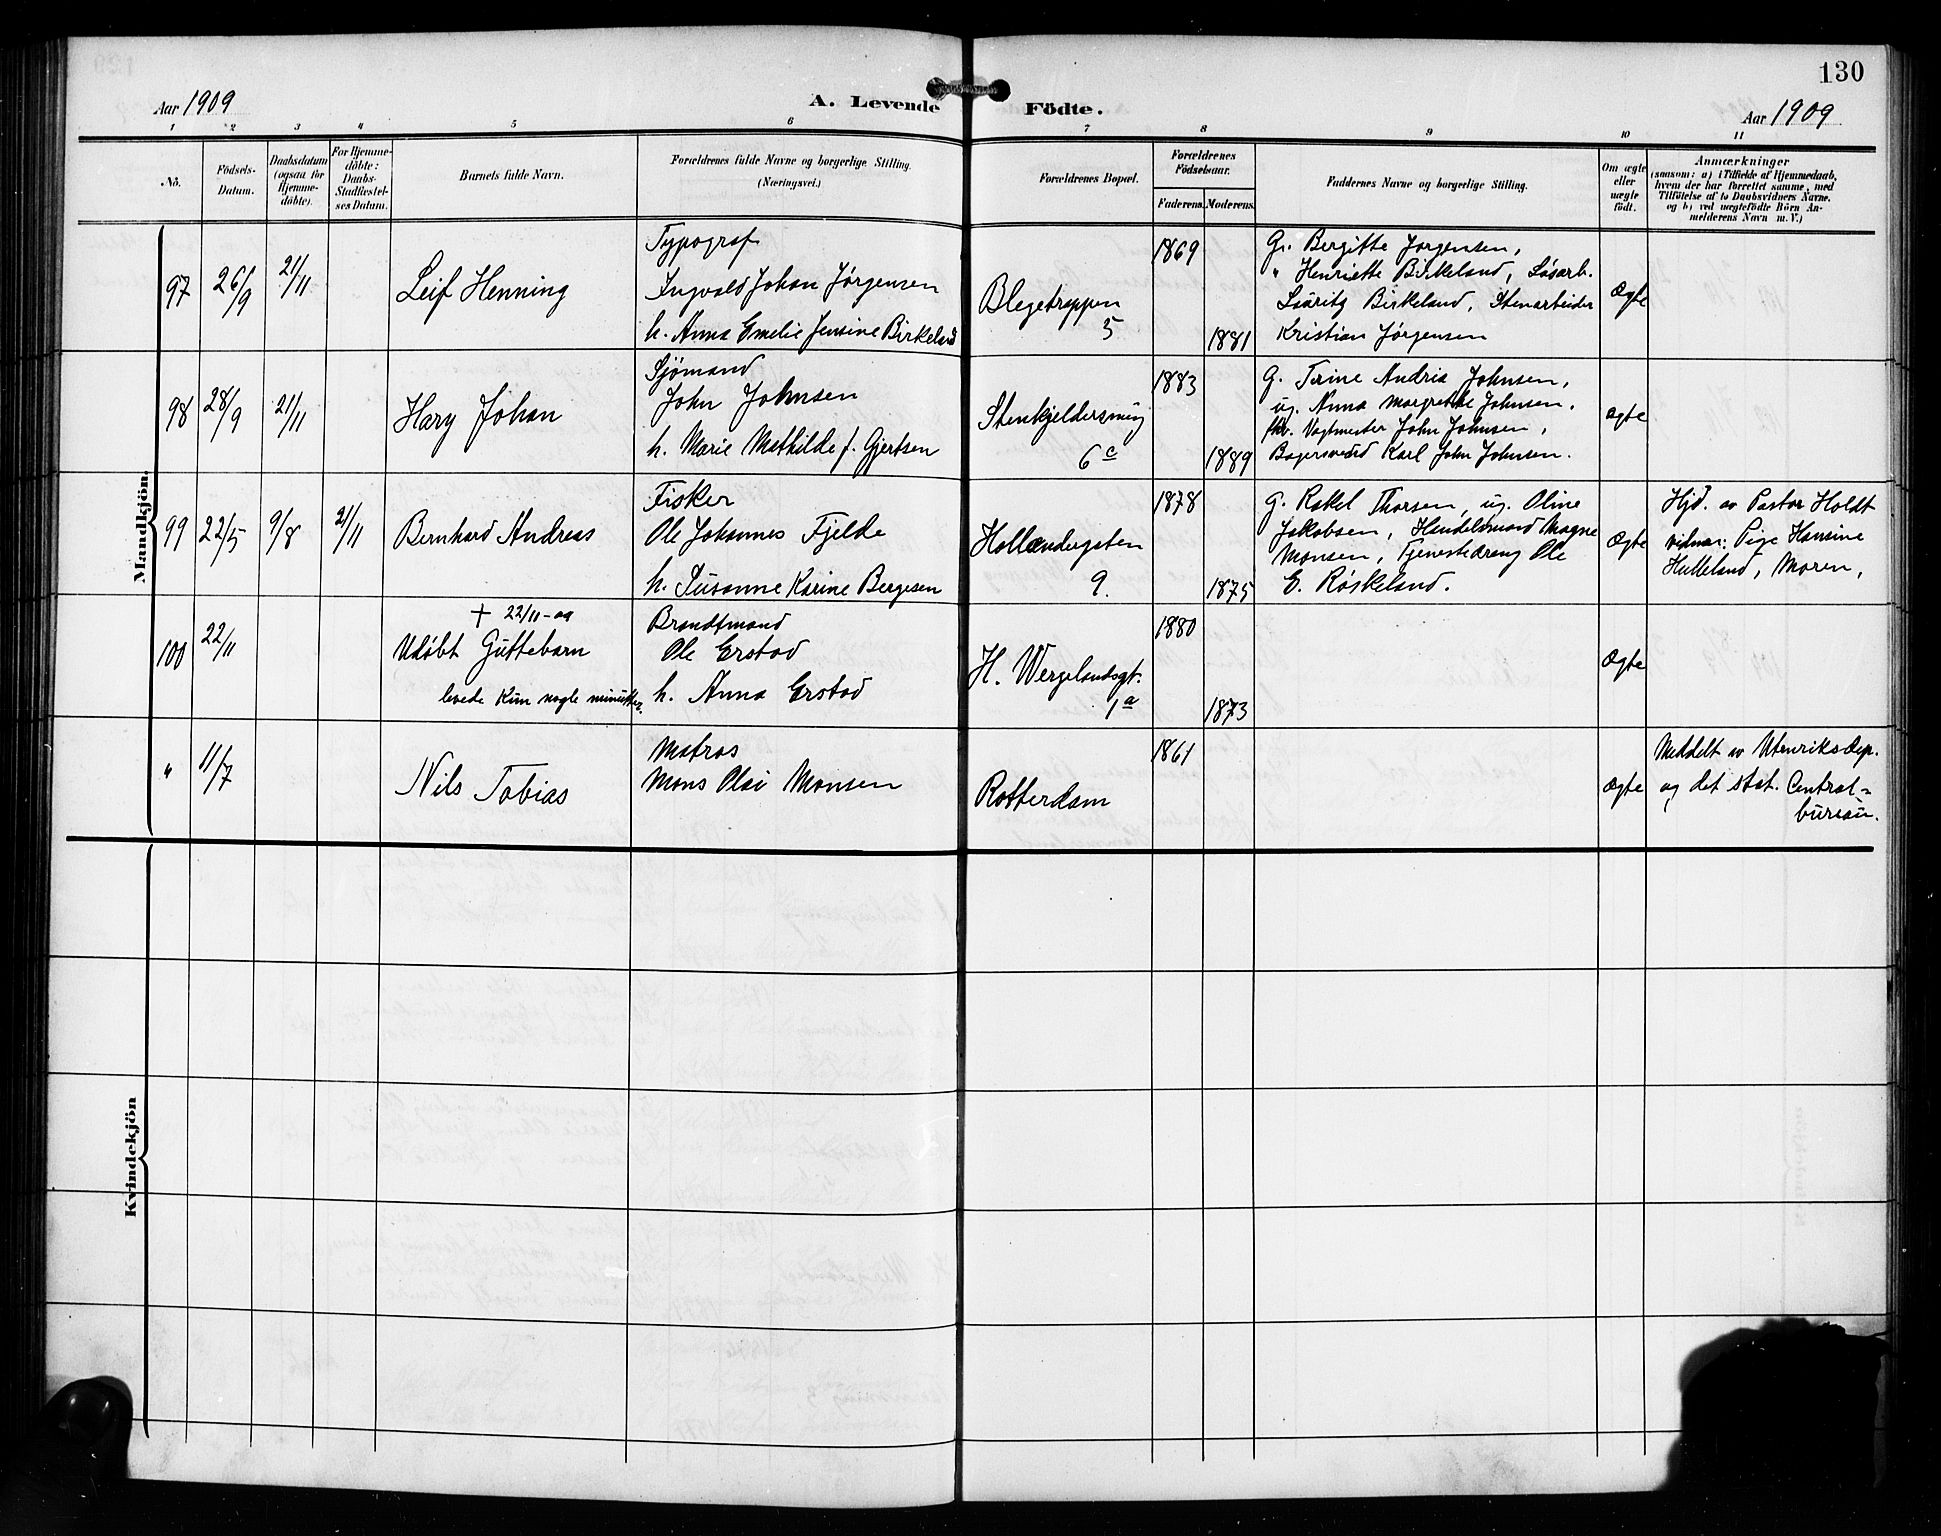 130
Aar 1909
A. Levende Födte.
Aar 1909
1 2 3 4 5 6 7 8 9 10 11
Nö.
Födsels-
Datum.
Daabsdatum
(ogsaa for
Hjemme-
döbte).
For Hjemme-
döbte:
Daabs-
Stadfæstel-
ses Datum.
Barnets fulde Navn.
Forældrenes fulde Navne og borgerlige Stilling.
(Næringsvei.)
Forældrenes Bopæl.
Forældrenes
Födselsaar.
Faderens. Moderens.
Faddernes Navne og borgerlige Stilling.
Om ægte
eller
uægte
födt.
Anmærkninger
(saasom: a) i Tilfælde af Hjemmedaab,
hvem der har forrettet samme, med
Tilföielse af to Daabsvidners Navne,
og b) ved uægtefödte Börn An-
melderens Navn m. V.)
Mandkjön.
97
26/9
21/11
Leif Henning
Typograf
Ingvald Johan Jørgensen
h. Anna Emelie Jensine Birkeland
Blegetrappen
5
1869
1881
G. Bergitte Jørgensen,
" Henriette Birkeland, Løsarb.
Lauritz Birkeland, Stenarbeider
Kristian Jørgensen
Ægte
98
28/9
21/11
Hary Johan
Sjömand
John Johnsen
h. Marie Mathilde f. Gjertsen
Stenkjeldersmug
6c
1883
1889
G. Trine Andria Johnsen,
ug. Anna Margrethe Johnsen,
Vagtmester John Johnsen,
Bagersvend Karl John Johnsen.
ægte
99
22/5
9/8
21/11
Bernhard Andreas
Fisker
Ole Johannes Fjelde
h. Susanne Karine Bergesen
Hollændergaten
9.
1878
1875
G. Rakel Thorsen, ug. Oline
Jakobsen, Handelsmand Magne
Monsen, Tjenestedreng Ole
E. Røskeland.
Ægte
Hjd. av Pastor Holdt
vidner: Pige Hansine
Hulleland, Moren,
100
22/11
+ 22/11-09
Udøbt Guttebarn
levede kun nogle minutter.
Brandtmand
Ole Erstad
h. Anna Erstad
H. Wergelandsgt.
1a
1880
1873
Ægte
"
11/7
Nils Tobias
Matros
Mons Olai Monsen
Rotterdam
1861
Ægte
Meddelt av Utenriksdep.
og det stat. Central-
bureau.
Kvindekjön